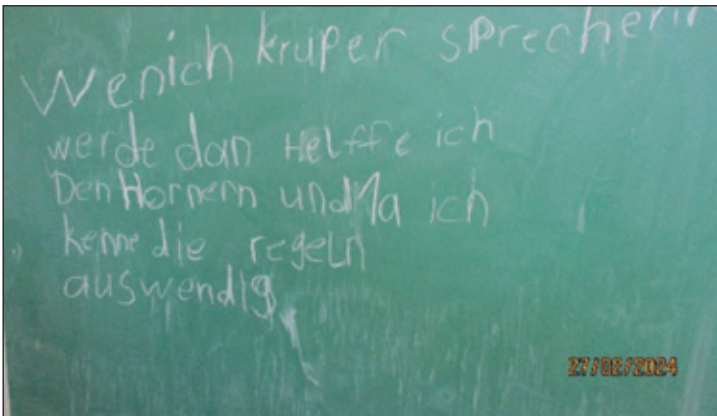 Wenich kruper sprecherin
werde dan Helffe ich
Den Hornern und Ma ich
kenne die regeln
auswendig
27/02/2024